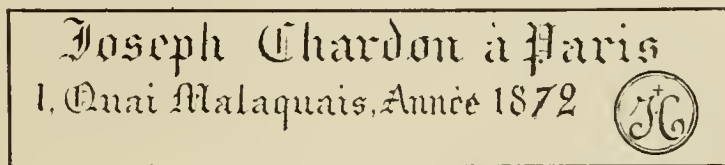 Joseph Chardon à Paris
1, Quai Malaquais, Année 1872
JC